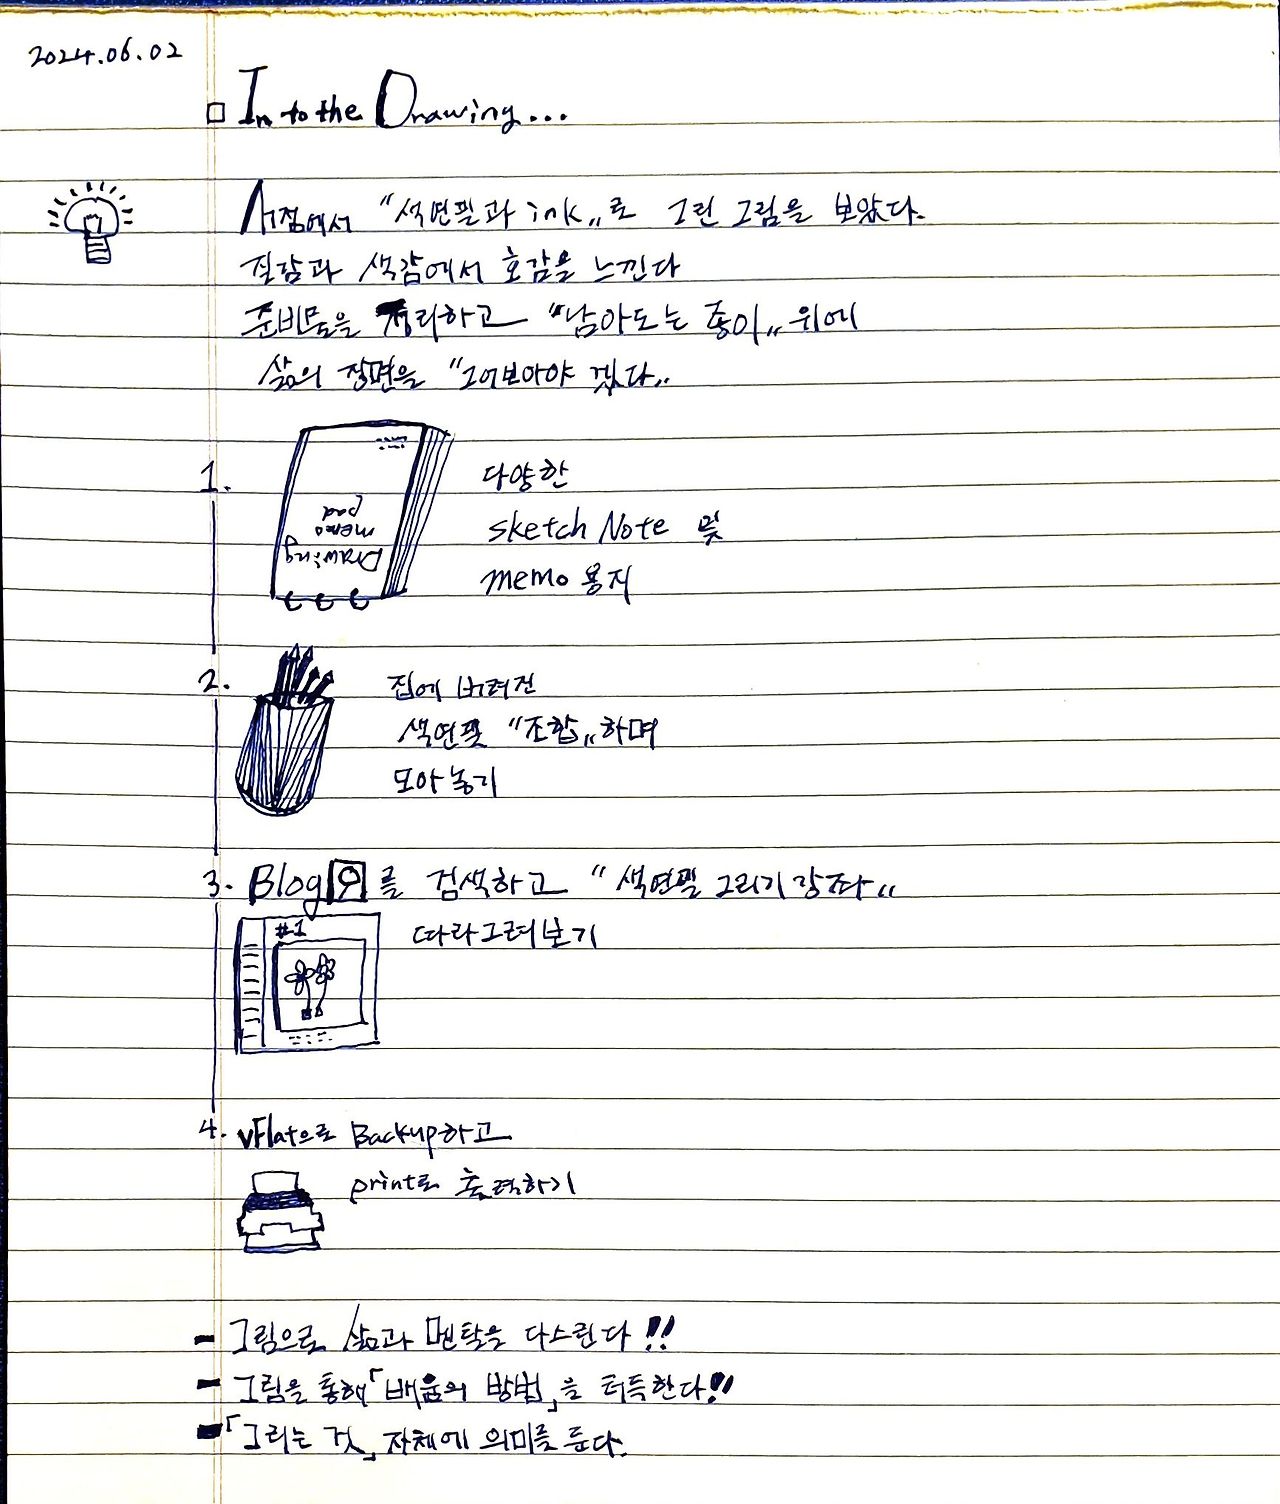 2024.06.02
□ Into the Drawing...
서점에서 "색연필과 ink"로 그린 그림을 보았다.
질감과 색감에서 호감을 느낀다
준비물을 정리하고 "남아도는 종이" 위에
삶의 장면을 "그어보아야 겠다"
1. 다양한
sketch Note 및
memo 용지
Drawing
memo
pad
2. 집에 버려진
색연필 "조합"하며
모아놓기
3. Blog를 검색하고 "색연필 그리기 강좌"
#1
따라그려보기
4. vFlat으로 Backup하고
print로 출력하기
- 그림으로 삶과 멘탈을 다스린다!!
- 그림을 통해「배움의 방법」을 터득한다!!
-「그리는 것」자체에 의미를 둔다.